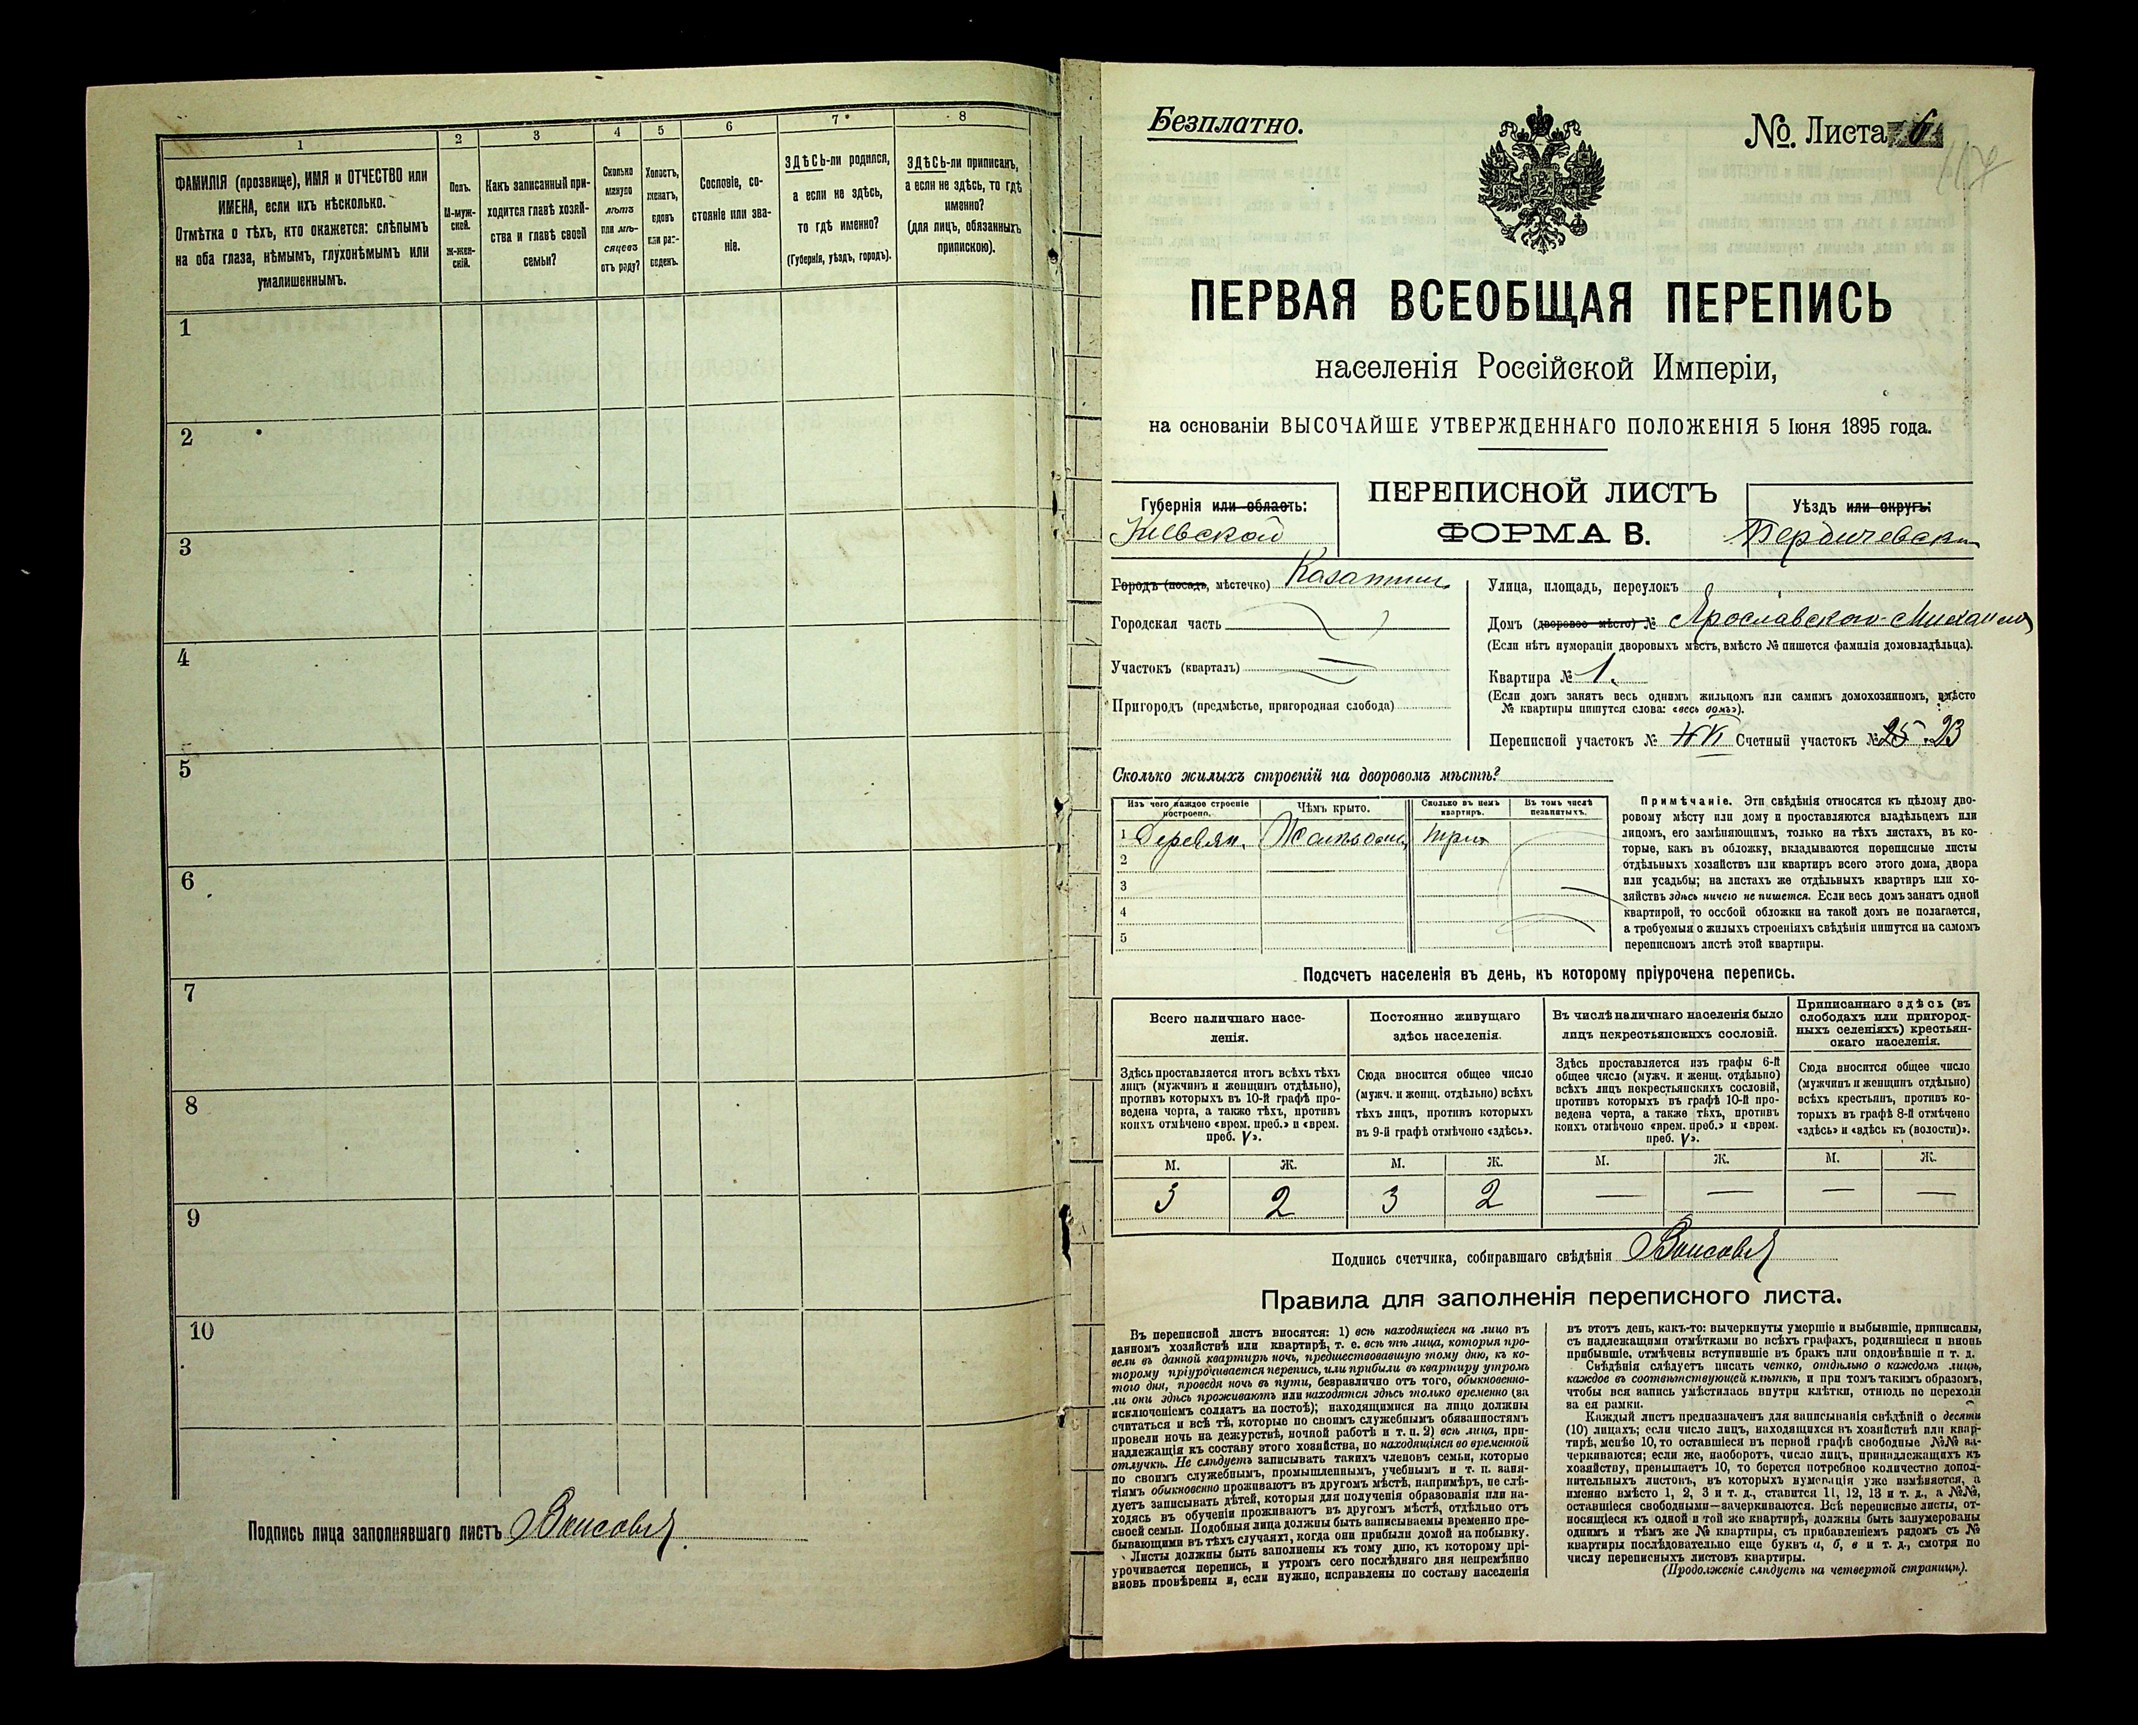 1
2
3
4
5
6
7
8
ФАМИЛІЯ (прозвище), ИМЯ и ОТЧЕСТВО или
ИМЕНА, если ихъ нѣсколько.
Отмѣтка о тѣхъ, кто окажется: слѣпымъ
на оба глаза, нѣмымъ, глухонѣмымъ или
умалишеннымъ.
Полъ.
М-муж-
ской.
Ж-жен-
скій.
Какъ записанный при-
ходится главѣ хозяй-
ства и главѣ своей
семьи?
Сколько
минуло
лѣтъ
или мѣ-
сяцевъ
отъ роду?
Холостъ,
женатъ,
вдовъ
или раз-
веденъ.
Сословіе, со-
стояніе или зва-
ніе.
ЗДѢСЬ-ли родился,
а если не здѣсь,
то гдѣ именно?
(Губернія, уѣздъ, городъ).
ЗДѢСЬ-ли приписанъ,
а если не здѣсь, то гдѣ
именно?
(для лицъ, обязанныхъ
припискою).
1
2
3
4
5
6
7
8
9
10
Подпись лица заполнявшаго листъ
Безплатно.
№ Листа 6
ПЕРВАЯ ВСЕОБЩАЯ ПЕРЕПИСЬ
населенія Россійской Имперіи,
на основаніи ВЫСОЧАЙШЕ УТВЕРЖДЕННАГО ПОЛОЖЕНІЯ 5 Іюня 1895 года.
ПЕРЕПИСНОЙ ЛИСТЪ
ФОРМА В.
Губернія или область:
Кіевской
Уѣздъ или округъ:
Бердичевск
Городъ (посадъ, мѣстечко) Казатин
Городская часть
Участокъ (кварталъ)
Пригородъ (предмѣстье, пригородная слобода)
Улица, площадь, переулокъ
Домъ (дворовое мѣсто) № Ярославского Михаила
(Если нѣтъ нумераціи дворовыхъ мѣстъ, вмѣсто № пишется фамилія домовладѣльца).
Квартира № 1.
(Если домъ занятъ весь однимъ жильцомъ или самимъ домохозяиномъ, вмѣсто
№ квартиры пишутся слова: «весь домъ»).
Переписной участокъ № VI Счетный участокъ № 25 23
Сколько жилыхъ строеній на дворовомъ мѣстѣ?
Изъ чего каждое строеніе
построено.
Чѣмъ крыто.
Сколько въ немъ
квартиръ.
Въ томъ числѣ
незанятыхъ.
1 Деревян. три
2
3
4
5
Примѣчаніе. Эти свѣдѣнія относятся къ цѣлому дво-
ровому мѣсту или дому и проставляются владѣльцемъ или
лицомъ, его замѣняющимъ, только на тѣхъ листахъ, въ ко-
торые, какъ въ обложку, вкладываются переписные листы
отдѣльныхъ хозяйствъ или квартиръ всего этого дома, двора
или усадьбы; на листахъ же отдѣльныхъ квартиръ или хо-
зяйствъ здѣсь ничего не пишется. Если весь домъ занятъ одной
квартирой, то особой обложки на такой домъ не полагается,
а требуемыя о жилыхъ строеніяхъ свѣдѣнія пишутся на самомъ
переписномъ листѣ этой квартиры.
Подсчетъ населенія въ день, къ которому пріурочена перепись.
Всего наличнаго насе-
ленія.
Постоянно живущаго
здѣсь населенія.
Въ числѣ наличнаго населенія было
лицъ некрестьянскихъ сословій.
Приписаннаго здѣсь (въ
слободахъ или пригород-
ныхъ селеніяхъ) крестьян-
скаго населенія.
Здѣсь проставляется итогъ всѣхъ тѣхъ
лицъ (мужчинъ и женщинъ отдѣльно),
противъ которыхъ въ 10-й графѣ про-
ведена черта, а также тѣхъ, противъ
коихъ отмѣчено «врем. преб.» и «врем.
преб. V».
Сюда вносится общее число
(мужч. и женщ. отдѣльно) всѣхъ
тѣхъ лицъ, противъ которыхъ
въ 9-й графѣ отмѣчено «здѣсь».
Здѣсь проставляется изъ графы 6-й
общее число (мужч. и женщ. отдѣльно)
всѣхъ лицъ некрестьянскихъ сословій,
противъ которыхъ въ графѣ 10-й про-
ведена черта, а также тѣхъ, противъ
коихъ отмѣчено «врем. преб.» и «врем.
преб. V».
Сюда вносится общее число
(мужчинъ и женщинъ отдѣльно)
всѣхъ крестьянъ, противъ ко-
торыхъ въ графѣ 8-й отмѣчено
«здѣсь» и «здѣсь къ (волости)».
М. Ж. М. Ж. М. Ж. М. Ж.
3 2 3 2 — — — —
Подпись счетчика, собиравшаго свѣдѣнія
Правила для заполненія переписного листа.
Въ переписной листъ вносятся: 1) всѣ находящіеся на лицо въ
данномъ хозяйствѣ или квартирѣ, т. е. всѣ тѣ лица, которыя про-
вели въ данной квартирѣ ночь, предшествовавшую тому дню, къ ко-
торому пріурочивается перепись, или прибыли въ квартиру утромъ
того дня, проведя ночь въ пути, безразлично отъ того, обыкновенно-
ли они здѣсь проживаютъ или находятся здѣсь только временно (за
исключеніемъ солдатъ на постоѣ); находящимися на лицо должны
считаться и всѣ тѣ, которые по своимъ служебнымъ обязанностямъ
провели ночь на дежурствѣ, ночной работѣ и т. п. 2) всѣ лица, при-
надлежащія къ составу этого хозяйства, но находящіяся во временной
отлучкѣ. Не слѣдуетъ записывать такихъ членовъ семьи, которые
по своимъ служебнымъ, промышленнымъ, учебнымъ и т. п. заня-
тіямъ обыкновенно проживаютъ въ другомъ мѣстѣ, напримѣръ, не слѣ-
дуетъ записывать дѣтей, которыя для полученія образованія или на-
ходясь въ обученіи проживаютъ въ другомъ мѣстѣ, отдѣльно отъ
своей семьи. Подобныя лица должны быть записываемы временно пре-
бывающими въ тѣхъ случаяхъ, когда они прибыли домой на побывку.
Листы должны быть заполнены къ тому дню, къ которому прі-
урочивается перепись, и утромъ сего послѣдняго дня непремѣнно
вновь провѣрены и, если нужно, исправлены по составу населенія
въ этотъ день, какъ-то: вычеркнуты умершіе и выбывшіе, приписаны,
съ надлежащими отмѣтками во всѣхъ графахъ, родившіеся и вновь
прибывшіе, отмѣчены вступившіе въ бракъ или овдовѣвшіе и т. д.
Свѣдѣнія слѣдуетъ писать четко, отдѣльно о каждомъ лицѣ,
каждое въ соотвѣтствующей клѣткѣ, и при томъ такимъ образомъ,
чтобы вся запись умѣстилась внутри клѣтки, отнюдь не переходя
за ея рамки.
Каждый листъ предназначенъ для записыванія свѣдѣній о десяти
(10) лицахъ; если число лицъ, находящихся въ хозяйствѣ или квар-
тирѣ, менѣе 10, то оставшіеся въ первой графѣ свободные №№ за-
черкиваются; если же, наоборотъ, число лицъ, принадлежащихъ къ
хозяйству, превышаетъ 10, то берется потребное количество допол-
нительныхъ листовъ, въ которыхъ нумерація уже измѣняется, а
именно вмѣсто 1, 2, 3 и т. д., ставится 11, 12, 13 и т. д., а №№,
оставшіеся свободными—зачеркиваются. Всѣ переписные листы, от-
носящіеся къ одной и той же квартирѣ, должны быть занумерованы
однимъ и тѣмъ же № квартиры, съ прибавленіемъ рядомъ съ №
квартиры послѣдовательно еще буквъ а, б, в и т. д., смотря по
числу переписныхъ листовъ квартиры.
(Продолженіе слѣдуетъ на четвертой страницѣ).